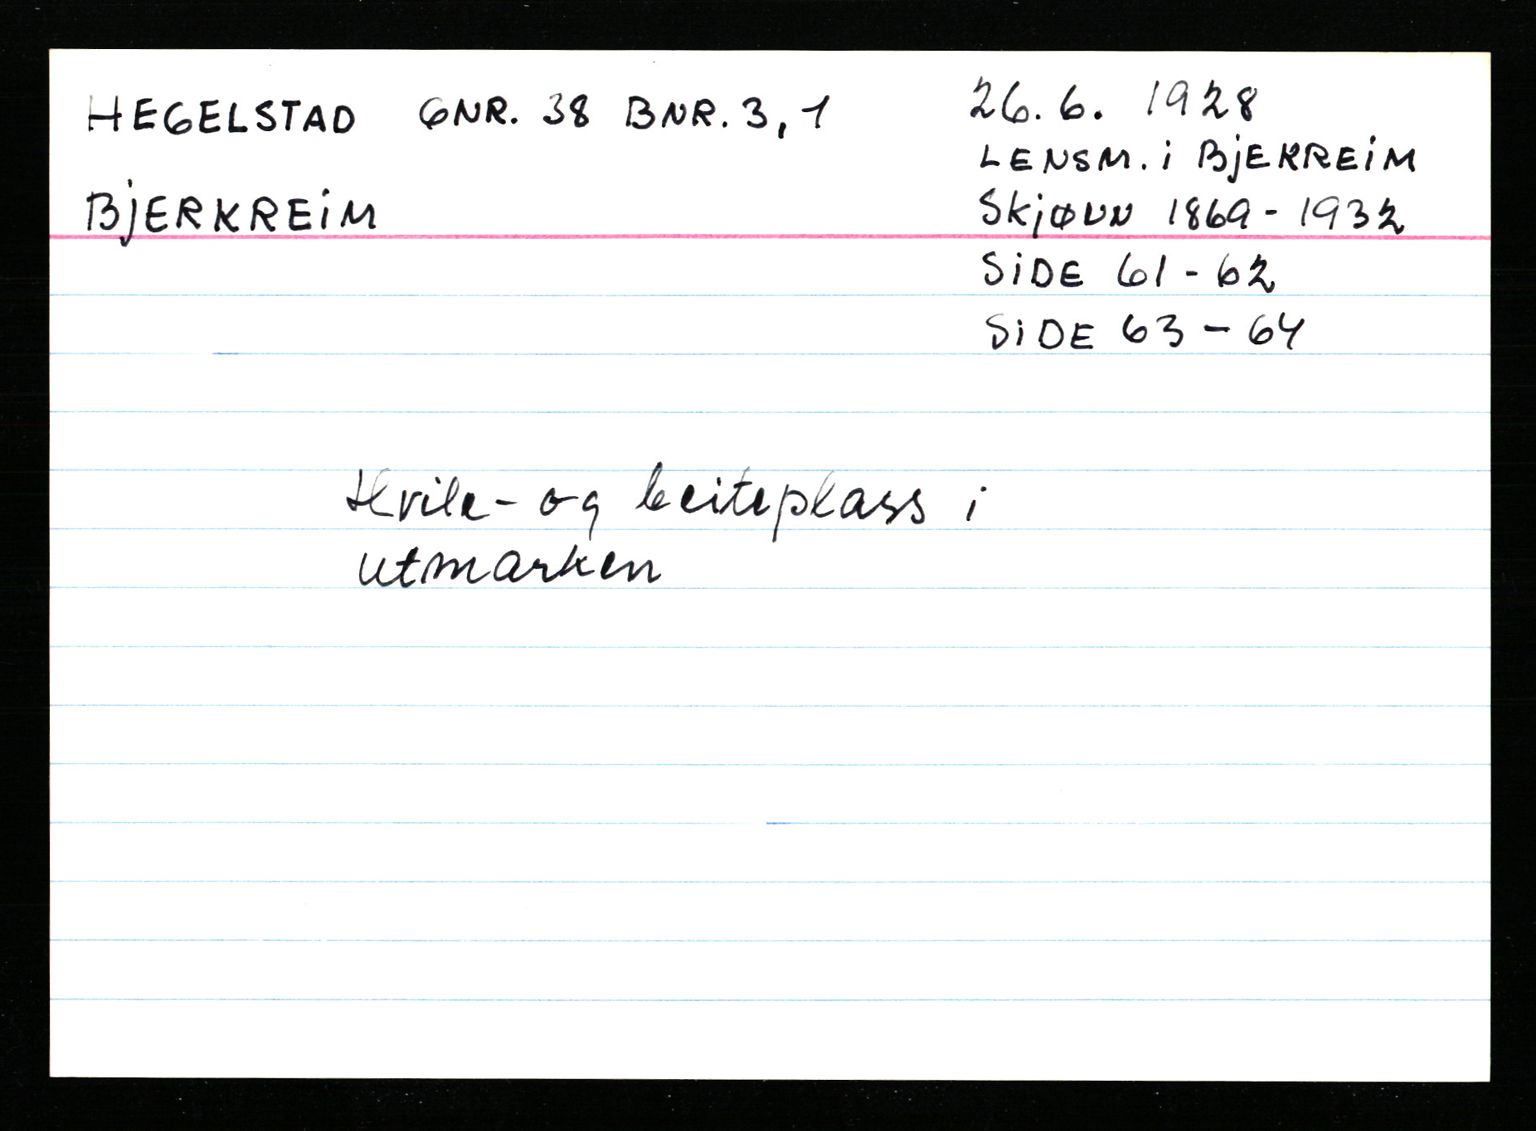 HEGELSTAD GNR. 38 BNR. 3, 1
BJERKREIM
26. 6. 1928
LENSM. i BJERKREIM
SKJØNN 1869 - 1932
SIDE 61 - 62
SIDE 63 - 64
Hvile- og beiteplass i
utmarken